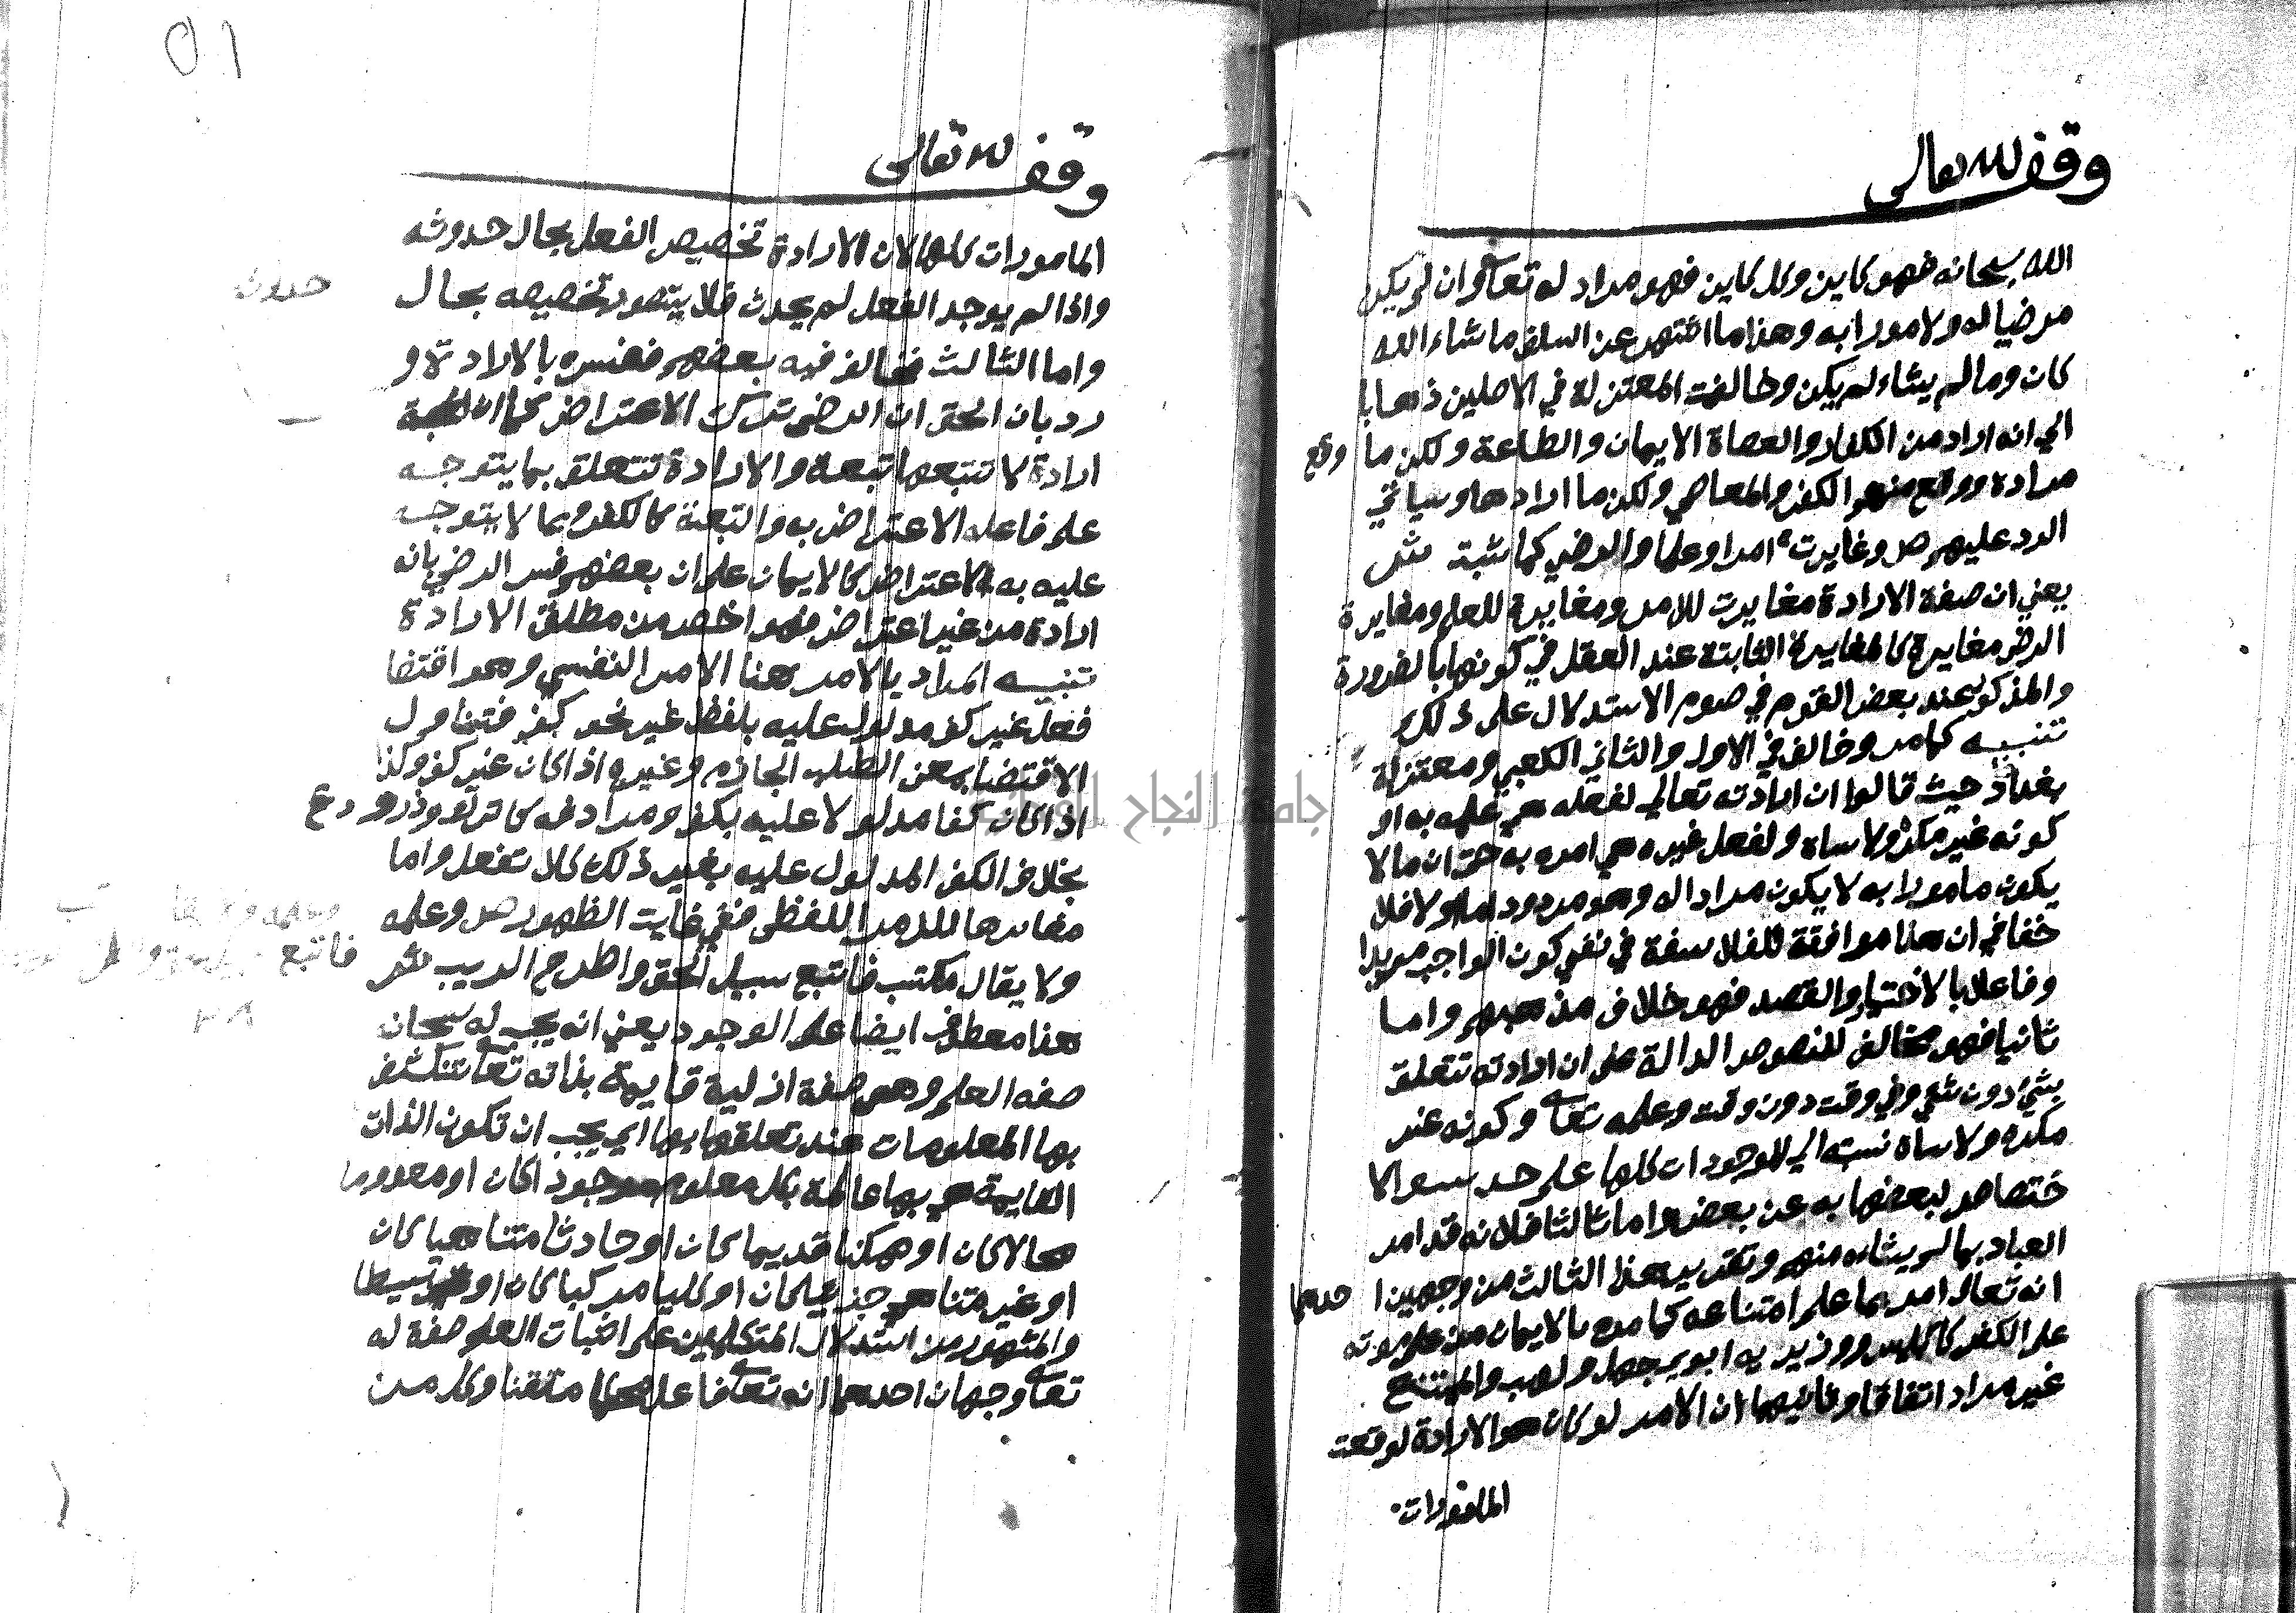 وقف لله تعالى
الله سبحانه فهو كاين وكل كاين فهو مراد له تعالى وان لم يكن
مرضيا له ولا مورا به وهذا ما اشتهر عن السلف ما شاء الله
كان وما لم يشاء لم يكن وخالفت المعتزلة في الاصلين ذهابا
الي انه اراد من الكفار والعصاة الايمان والطاعة ولكن ما وقع
مراده ووقع منهم الكفر والمعاصي ولكن ما ارادها وسياتي
الرد عليهم ص وغايرت امرا وعلما والرضي كما ثبت ش
يعني ان صفة الارادة مغايرت للامر ومغايرة للعلم ومغايرة
الرضر مغايرة كالمغايرة الثابتة عند العقل في كونها بالضرورة
والمذكور عند بعض القوم في صوم الاستدلال على ذلك
تنبيه كما مر وخالف في الاول والثاني الكعبي ومعتزلة
بغداد حيث قالوا ان ارادته تعالي لفعله هي علمه به او
كونه غير مكره ولا ساه ولفعل غيره هي امره به حتى ان ما لا
يكون مامورا به لا يكون مرادا له وهو مردود اما اولا فلا
خفا في ان هذا موافقة للفلاسفة في نفي كون الواجب مريدا
وفاعلا بالاختيار والقصد فهو خلاف مذهبهم واما
ثانيا فهو مخالف للنصوص الدالة على ان ارادته تتعلق
بشيء دون شي وفي وقت دون وقت وعلمه تعالى وكونه غير
مكره ولا ساه نسبته الي الموجودات كلها على حد سوا لا
ختصاص لبعضها به عن بعض واما ثالثا فلانه قد امر
العباد بما لم يشاه منهم وتقدير هذا الثالث من وجهين ا حدهما
انه تعالى امر بما علم امتناعه كما مره بالايمان من علم موته
على الكفر كا ووزيريه ابوي جهل ولهب والممتنع
غير مراد اتفاقا وثانيهما ان الامر لو كان هو الارادة لوقعت
المامورات
وقف لله تعالى
المامورات كلها لان الارادة تخصيص الفعل بحال حدوثه
واذا لم يوجد الفعل لم يحدث فلا يتصور تخصيصه بحال حدوثه
واما الثالث فخالف فيه بعضهم ففسره بالارادة و
رد بان الحق ان الرضى ترك الاعتراض كما ان المحبة
ارادة لا تتبعها تبعة والارادة تتعلق بما يتوجه
على فاعله الاعتراض به والتبعة كالكفر وبما لا يتوجه
عليه به الاعتراض كالايمان على ان بعضهم فسر الرضي بانه
ارادة من غير اعتراض فهو اخص من مطلق الارادة
تنبيه المراد بالامر هنا الامر النفسي وهو اقتضا
فعل غير كف مدلول عليه بلفظ غير نحو كف فتناول
الاقتضا بمعنى الطلب الجازم وغيره اذا كان غير كف وكذا
اذا كان كفا مدلولا عليه بكف ومرادفه كاترك وذر ودع
بخلاف الكف المدلول عليه بغير ذلك كلا تفعل واما
مغايرها للامر اللفظى ففي غايت الظهور ص وعلمه
ولا يقال مكتسب فاتبع سبيل الحق واطرح الريب ش فاتبع
هذا معطوف ايضا على الوجود يعني انه يجب له سبحانه
صفه العلم وهي صفة ازلية قايمة بذاته تعالى تنكشف
بها المعلومات عند تعلقها بها اي يجب ان تكون الذات
القايمة هي بها عالمة بكل معلوم موجود اكان او معدوما
محالا كان او ممكنا قديما كان او حادثا متناهيا كان
او غير متناهي جزئيا كان او كليا مركبا كان او بسيطا
والمشهور من استدلال المتكلمين على اثبات العلم صفة له
تعالى وجهان احدهما انه تعالى فاعل فعلا متقنا وكل من
جامعة النجاح الوطنية